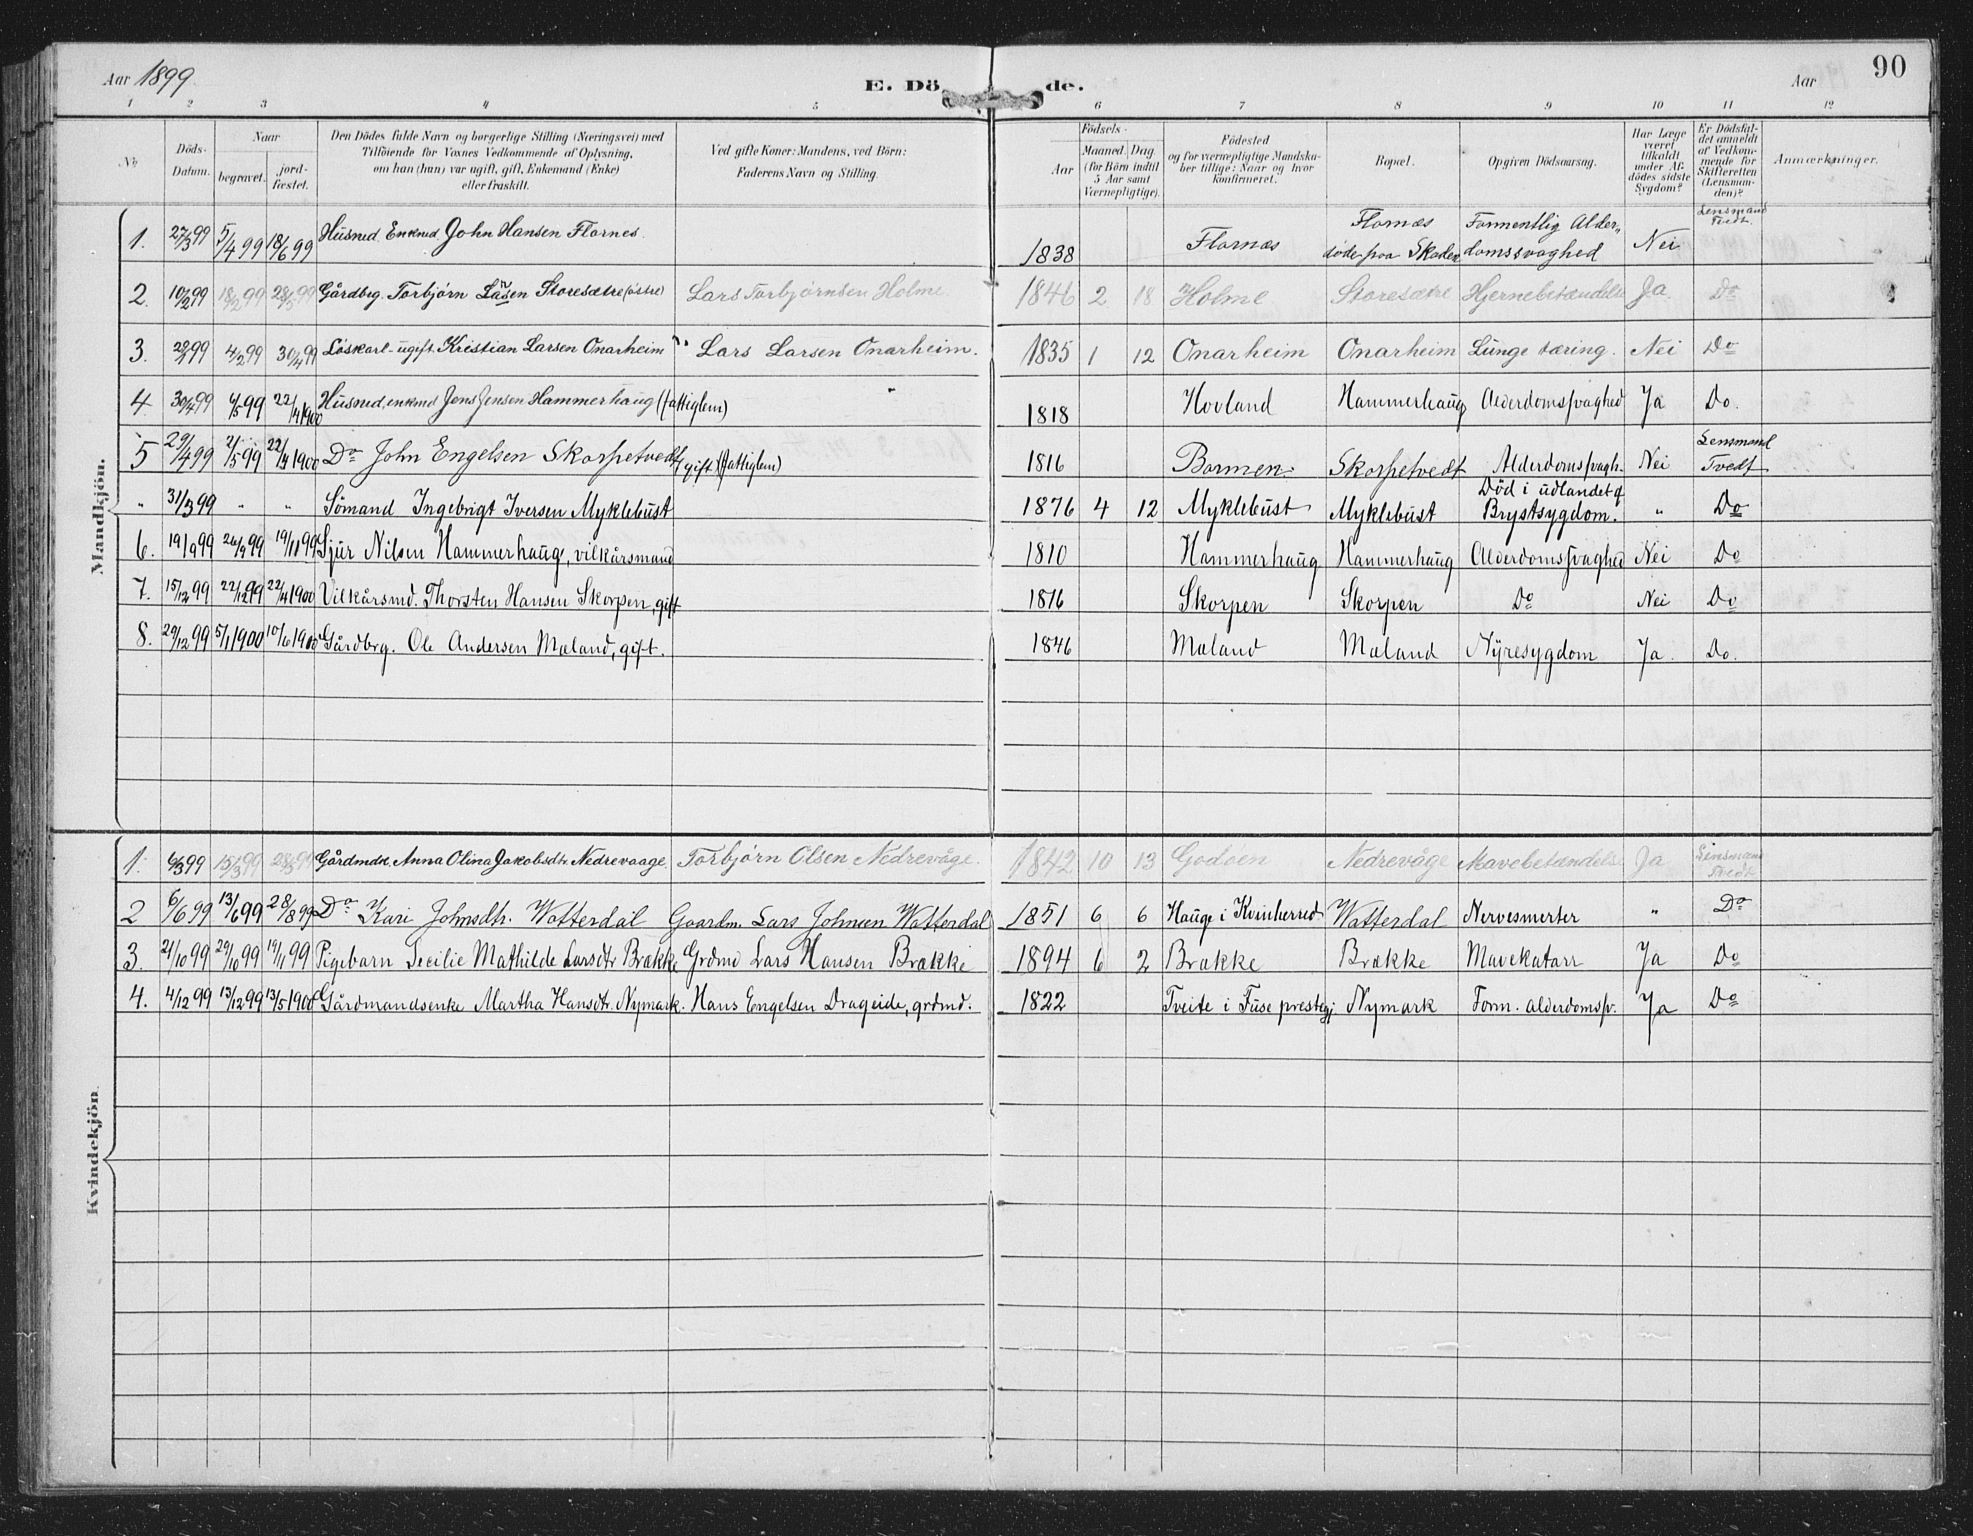 Aar 1899 E. Dö de. Aar 90
1 2 3 4 5 6 7 8 9 10 11 12
№ Döds-Datum. Naar begravet. jord-fæstet. Den Dödes fulde Navn og borgerlige Stilling (Næringsvei) med Tilföiende for Voxnes Vedkommende af Oplysning, om han (hun) var ugift, gift, Enkemand (Enke) eller fraskilt. Ved gifte Koner: Mandens, ved Börn: Faderens Navn og Stilling. Födsels- Aar Maaned. Dag. (for Börn indtil 5 Aar samt Værnepligtige). Födested og for værnepligtige Mandska-ber tillige: Naar og hvor konfirmeret. Bopæl. Opgiven Dödsaarsag. Har Læge været tilkaldt under Af-dödes sidste Sygdom? Er Dödsfal-det anmeldt af Vedkom-mende for Skifteretten (Lensman-den)? Anmærkninger.
Mandkjön.
1. 27/3 99 5/4 99 18/6 99 Husmd. Enkmd John Hansen Flornes. 1838 Flornæs Flornæs döde paa Skaden Formentlig Alder„domssvaghed Nei Lensmand Tvedt.
2. 10/2 99 18/2 99 28/5 99 Gårdbrg. Torbjörn Larsen Storesætre (östre) Lars Torbjörnsen Holme 1846 2 18 Holme Storesætre Hjernebetændelse Ja Do
3. 28/1 99 4/2 99 30/4 99 Löskarl - ugift. Kristian Larsen Onarheim Lars Larsen Onarheim. 1835 1 12 Onarheim Onarheim Lunge tæring. Nei Do
4. 30/4 99 6/5 99 22/4 1900 Husmd, enkmd Jens Jensen Hammerhaug (fattiglem) " 1818 Hovland Hammerhaug Alderdomssvaghed Ja Do.
5 29/4 99 2/5 99 22/4 1900 Do John Engelsen Skorpetvedt, gift (fattiglem) 1816 Bormen. Skorpetvedt Alderdomssvagh. Nei Lensmand Tvedt
" 31/3 99 " " Sömand Ingebrigt Iversen Myklebust 1876 4 12 Myklebust Myklebust Död i udlandet af Brystsygdom. " Do
6. 19/9 99 26/9 99 19/11 99 Sjur Nilsen Hammerhaug, vilkårsmand 1810 Hammerhaug Hammerhaug Alderdomssvaghed Nei Do
7. 15/12 99 22/12 99 22/4 1900 Vilkårsmd. Thorsten Hansen Skorpen, gift 1816 Skorpen Skorpen Do Nei Do
8. 29/12 99 5/1 1900 10/6 1900 Gårdbrg. Ole Andersen Mæland, gift. 1846 Mæland Mæland Nyresygdom Ja. Do.
Kvindekjön
1. 6/3 99 15/3 99 28/5 99 Gårdmdk. Anna Olina Jakobsdtr. Nedrevaage. Torbjörn Olsen Nedrevåge. 1842 10 13 Godöen Nedrevåge Mavebetændelse Ja Lensmand Tvedt
2 6/6 99 13/6 99 28/8 99 Do Kari Johnsdtr. Watterdal Gaardm. Lars Johnsen Watterdal 1851 6 6 Hauge i Kvinherred Watterdal Nervesmerter " Do
3. 21/10 99 29/10 99 19/11 99 Pigebarn Secilie Mathilde Larsdtr Brække Grdmd Lars Hansen Brække 1894 6 2 Brække Brække Mavekatarr Ja Do
4. 4/12 99 13/12 99 13/5 1900 Gårdmandsenke Martha Hansdtr. Nymark. Hans Engelsen Drageide, grdmd. 1822 Tveite i Fuse prestegj Nymark Form. alderdomssv. Ja Do